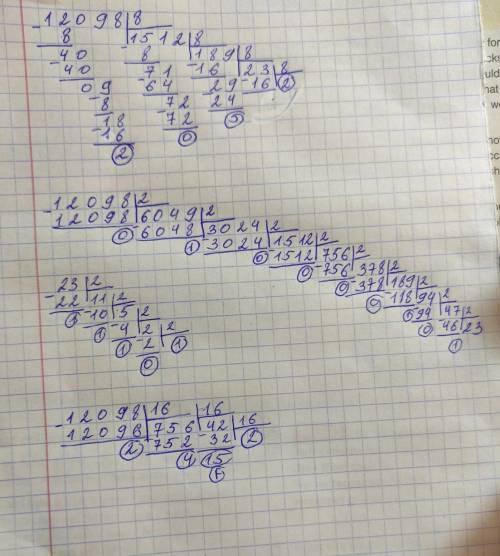 -12098|8
8 -1512|8
-40 8 -189|8
40 -71 16 -23|8
09 64 -29 16 2
-8 -72 24
-18 72 5
-16 0
2
-12098|2
12098 -6049|2
0 6048 -3024|2
1 3024 -1512|2
0 1512 -756|2
0 756 378|2
0 -378 189|2
-23|2 0 -188 94|2
22 11|2 94 47|2
1 -10 5|2 0 -46 23
1 -4 2|2 1
1 -2 1
0
-12098|16 |16
12096 -756 42|16
2 752 -32 2
4 15
F